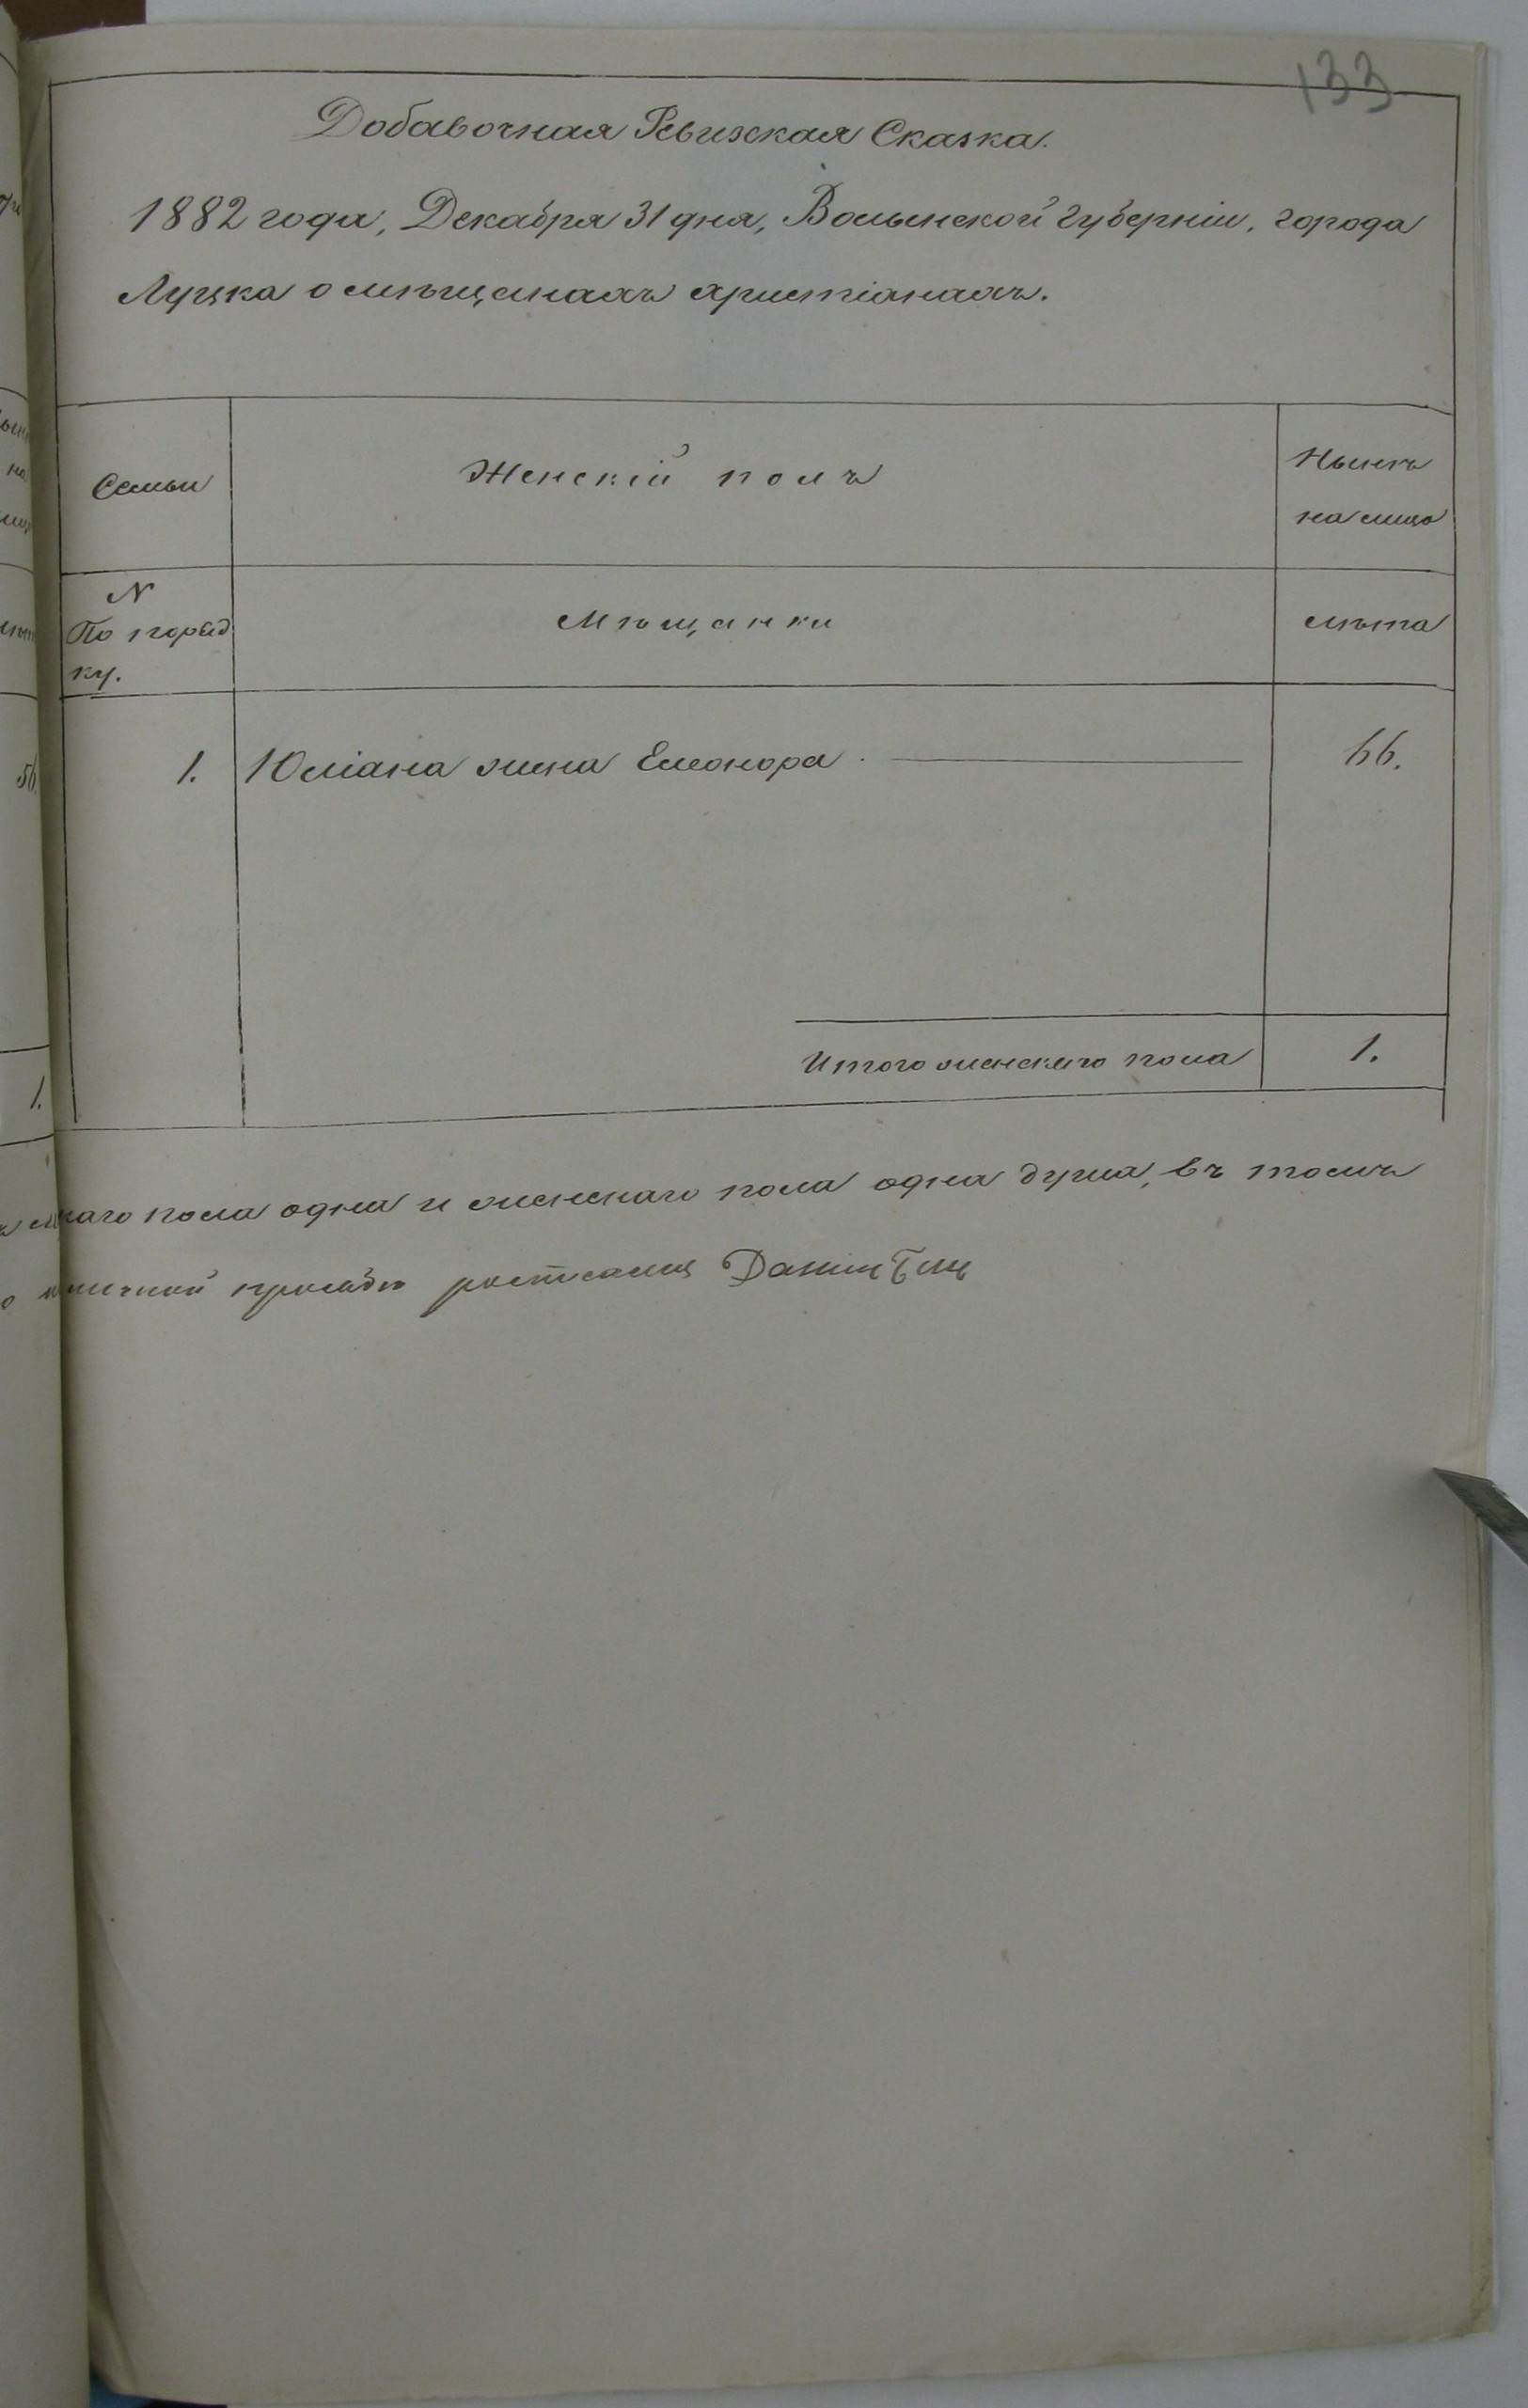 133
Добавочная Ревизская Сказка.
1882 года, Декабря 31 дня, Волынской губерніи, города
Луцка о мѣщанахъ христіанахъ.
Семьи
Женскій полъ
Нынѣ
на лицо
N
По поряд
ку.
Мѣщанки
лѣта
1. Юліана жена Елеонора. 66.
Итого женскаго пола 1.
пола одна и женскаго пола одна душа, въ томъ
личной прозьбѣ
56.
1.